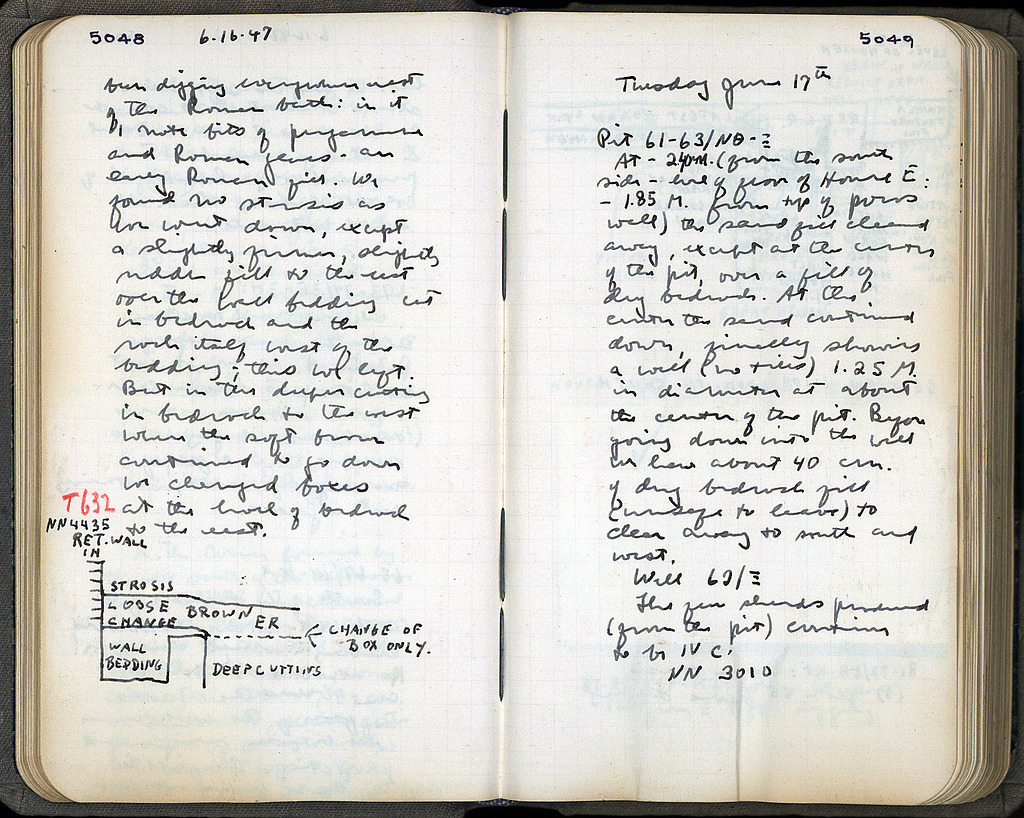 5048 6·16·47
been digging everywhere west
of the Roman bath: in it
I note bits of pergamene
and Roman pieces - an
early Roman fill. We
found no strosis as
we went down, except
a slightly firmer, slightly
redder fill to the east
over the wall bedding cut
in bedrock and the
rock itself west of the
bedding; this we left.
But in the deeper cutting
in bedrock to the west
where the soft brown
continued to go down
we changed boxes
at the level of bedrock
to the east.
T632
NN4435
RET. WALL
IN
STROSIS
LOOSE BROWN ER
CHANGE
WALL
BEDDING
DEEP CUTTING
CHANGE OF
BOX ONLY.
5049
Tuesday June 17th
Pit 61-63/ΝΘ-Ξ
At - 2.40 M. (from the south
side - level of floor of House E.
- 1.85 M. from top of poros
wall) the sand fill cleared
away, except at the center
of the pit, over a fill of
dug bedrock. At the
center the sand continued
down, finally showing
a well (no tiles) 1.25 M.
in diameter at about
the center of the pit. Before
going down into the well
we have about 40 cm.
of dug bedrock fill
(unsafe to leave) to
clear away to south and
west.
Well 62/Ξ
The few sherds produced
(from the pit) continue
to be IV C.
NN 3010